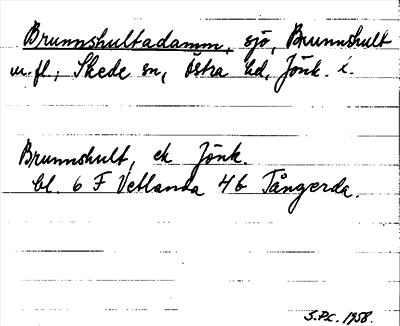 Brunnshultadamm, sjö, Brunnshult
m.fl.; Skede sn, Östra hd, Jönk. l.
Brunnshult, ek Jönk.
bl. 6 F Vetlanda 4b Tångerda.
S.Pc. 1958.